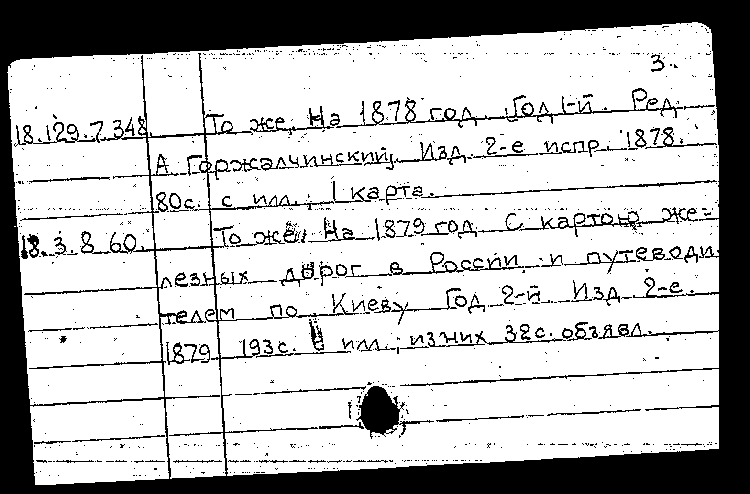 3.
18.129.7.348 То же, На 1878 год. Год 1-й. Ред.
А Горжалчинский. Изд. 2-е испр. 1878.
80с. с илл.; 1 карта.
18.3.8.60. То же, На 1879 год. С картою же=
лезных дорог в России и путеводи
телем по Киеву Год 2-й Изд. 2-е.
1879 193с. илл.; из них 32с. объявл.